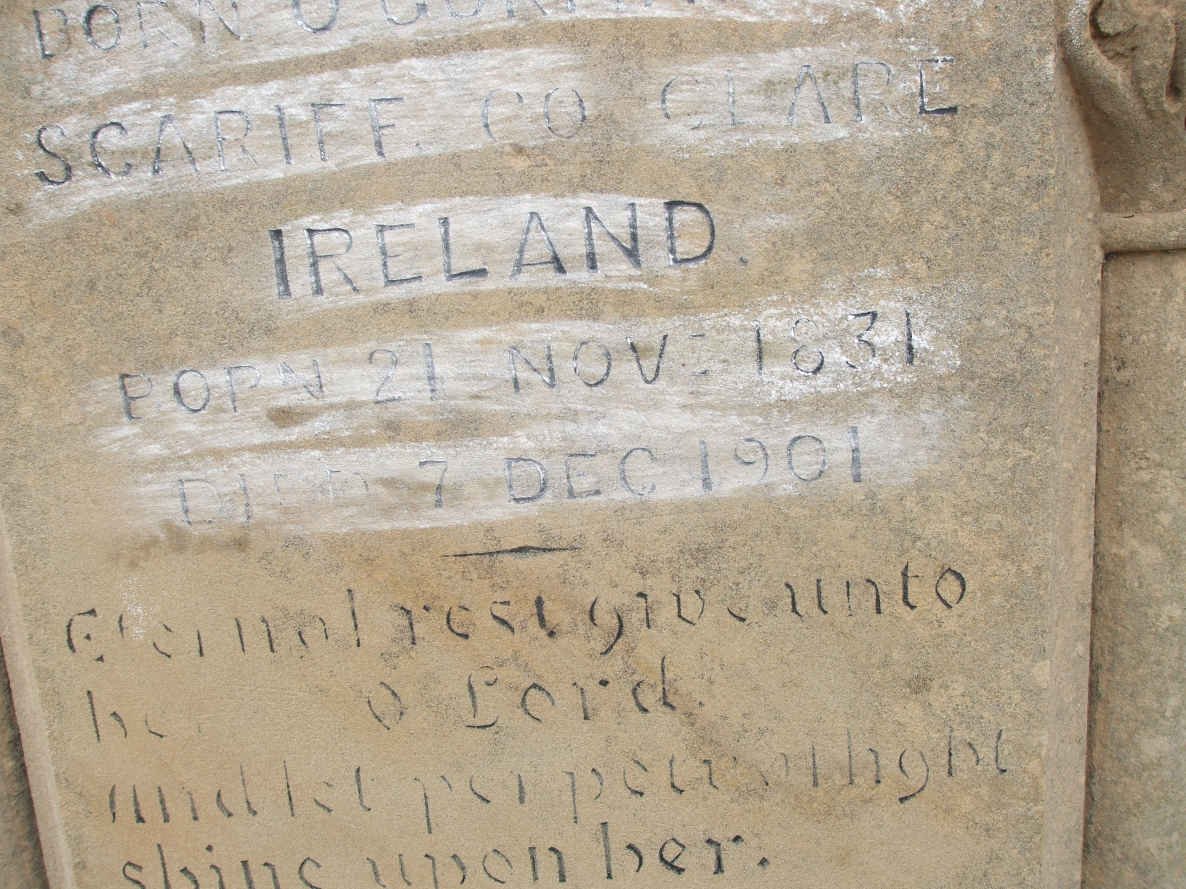 BORN O'GORMAN
SCARIFF. CO CLARE
IRELAND.
BORN 21 NOV. 1831
DIED 7 DEC 1901
Eternal rest give unto
her O Lord.
and let perpetual light
shine upon her.